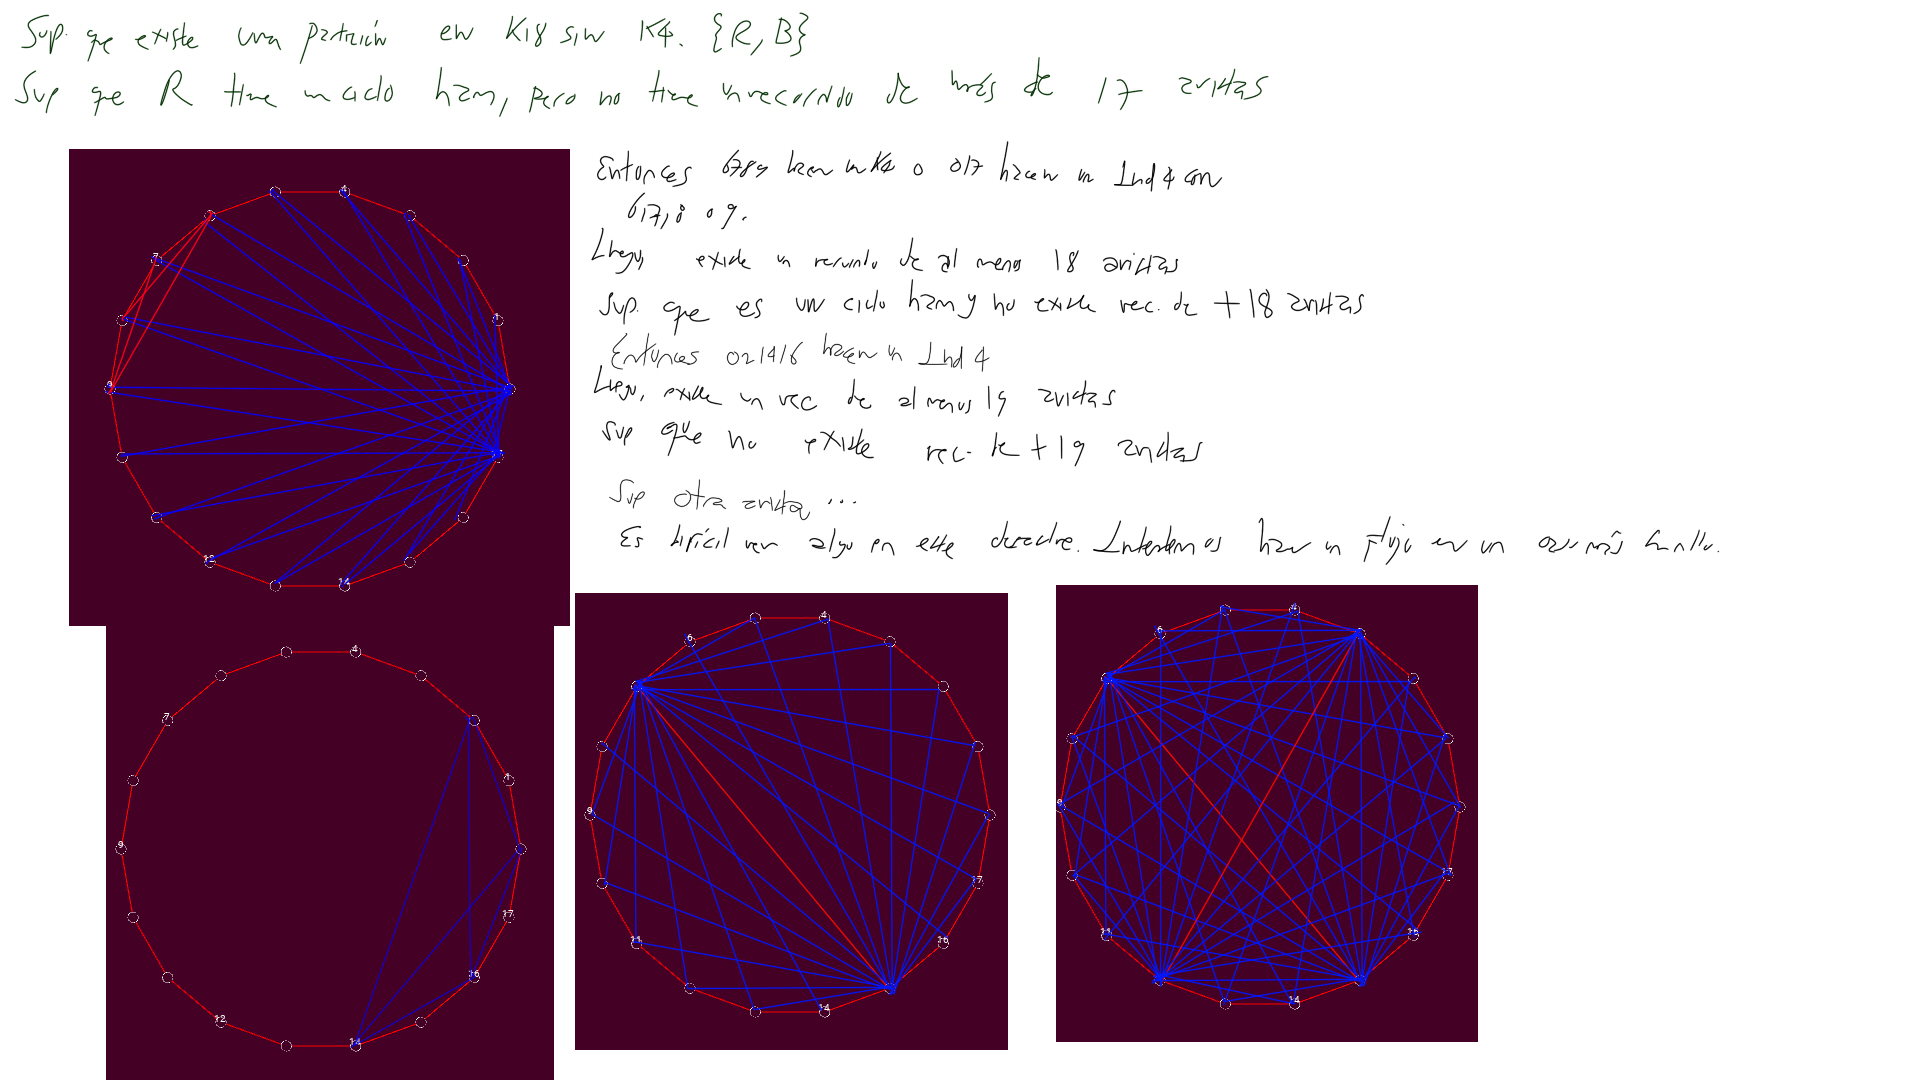 Sup. que existe una partición en K18 sin K4. {R, B}
Sup que R tiene un ciclo ham, pero no tiene un recorrido de más de 17 aristas
Entonces 6789 hacen un K4 o 017 hacen un Ind 4 con
6,7,8 o 9.
Luego, existe un recorrido de al menos 18 aristas
Sup. que es un ciclo ham y no existe rec. de +18 aristas
Entonces 021416 hacen un Ind 4
Luego, existe un rec de al menos 19 aristas
Sup que no existe rec. de +19 aristas
Sup otra arista ...
Es difícil ver algo en este desastre. Intentemos hacer un flujo en un caso más sencillo.
4
7
1
9
12
14
4
7
1
9
17
16
12
14
4
6
9
17
11
16
14
4
6
9
17
11
16
14